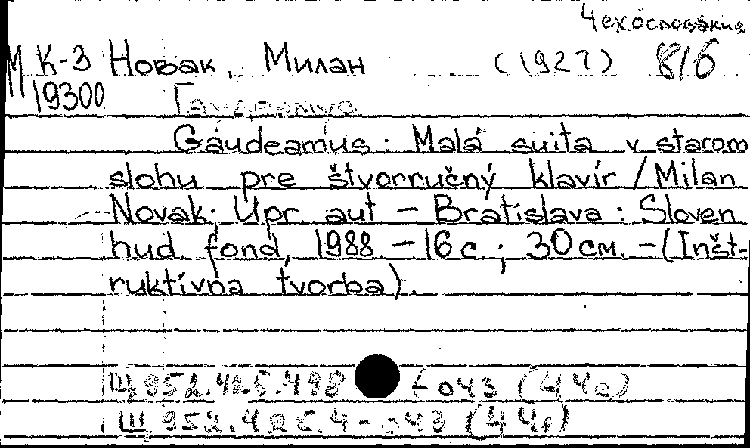 Чехословакия
М К-3 Новак, Милан (1927) 816
19300 Гаудеамус
Gaudeamus: Malá suita v starom
slohu pre štvorručný klavír / Milan
Novak. Upr. aut. - Bratislava: Sloven.
hud. fond, 1988. - 16 с.; 30 см. - (Inšt-
ruktívna tvorba).
Щ 952.425.498 043 (4Че)
Щ 952.425.4-043 (4Че)